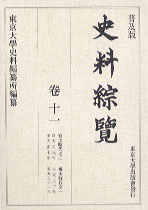 普及版
史料綜覽
卷十一
東京大學史料編纂所編纂
東京大學出版會發行